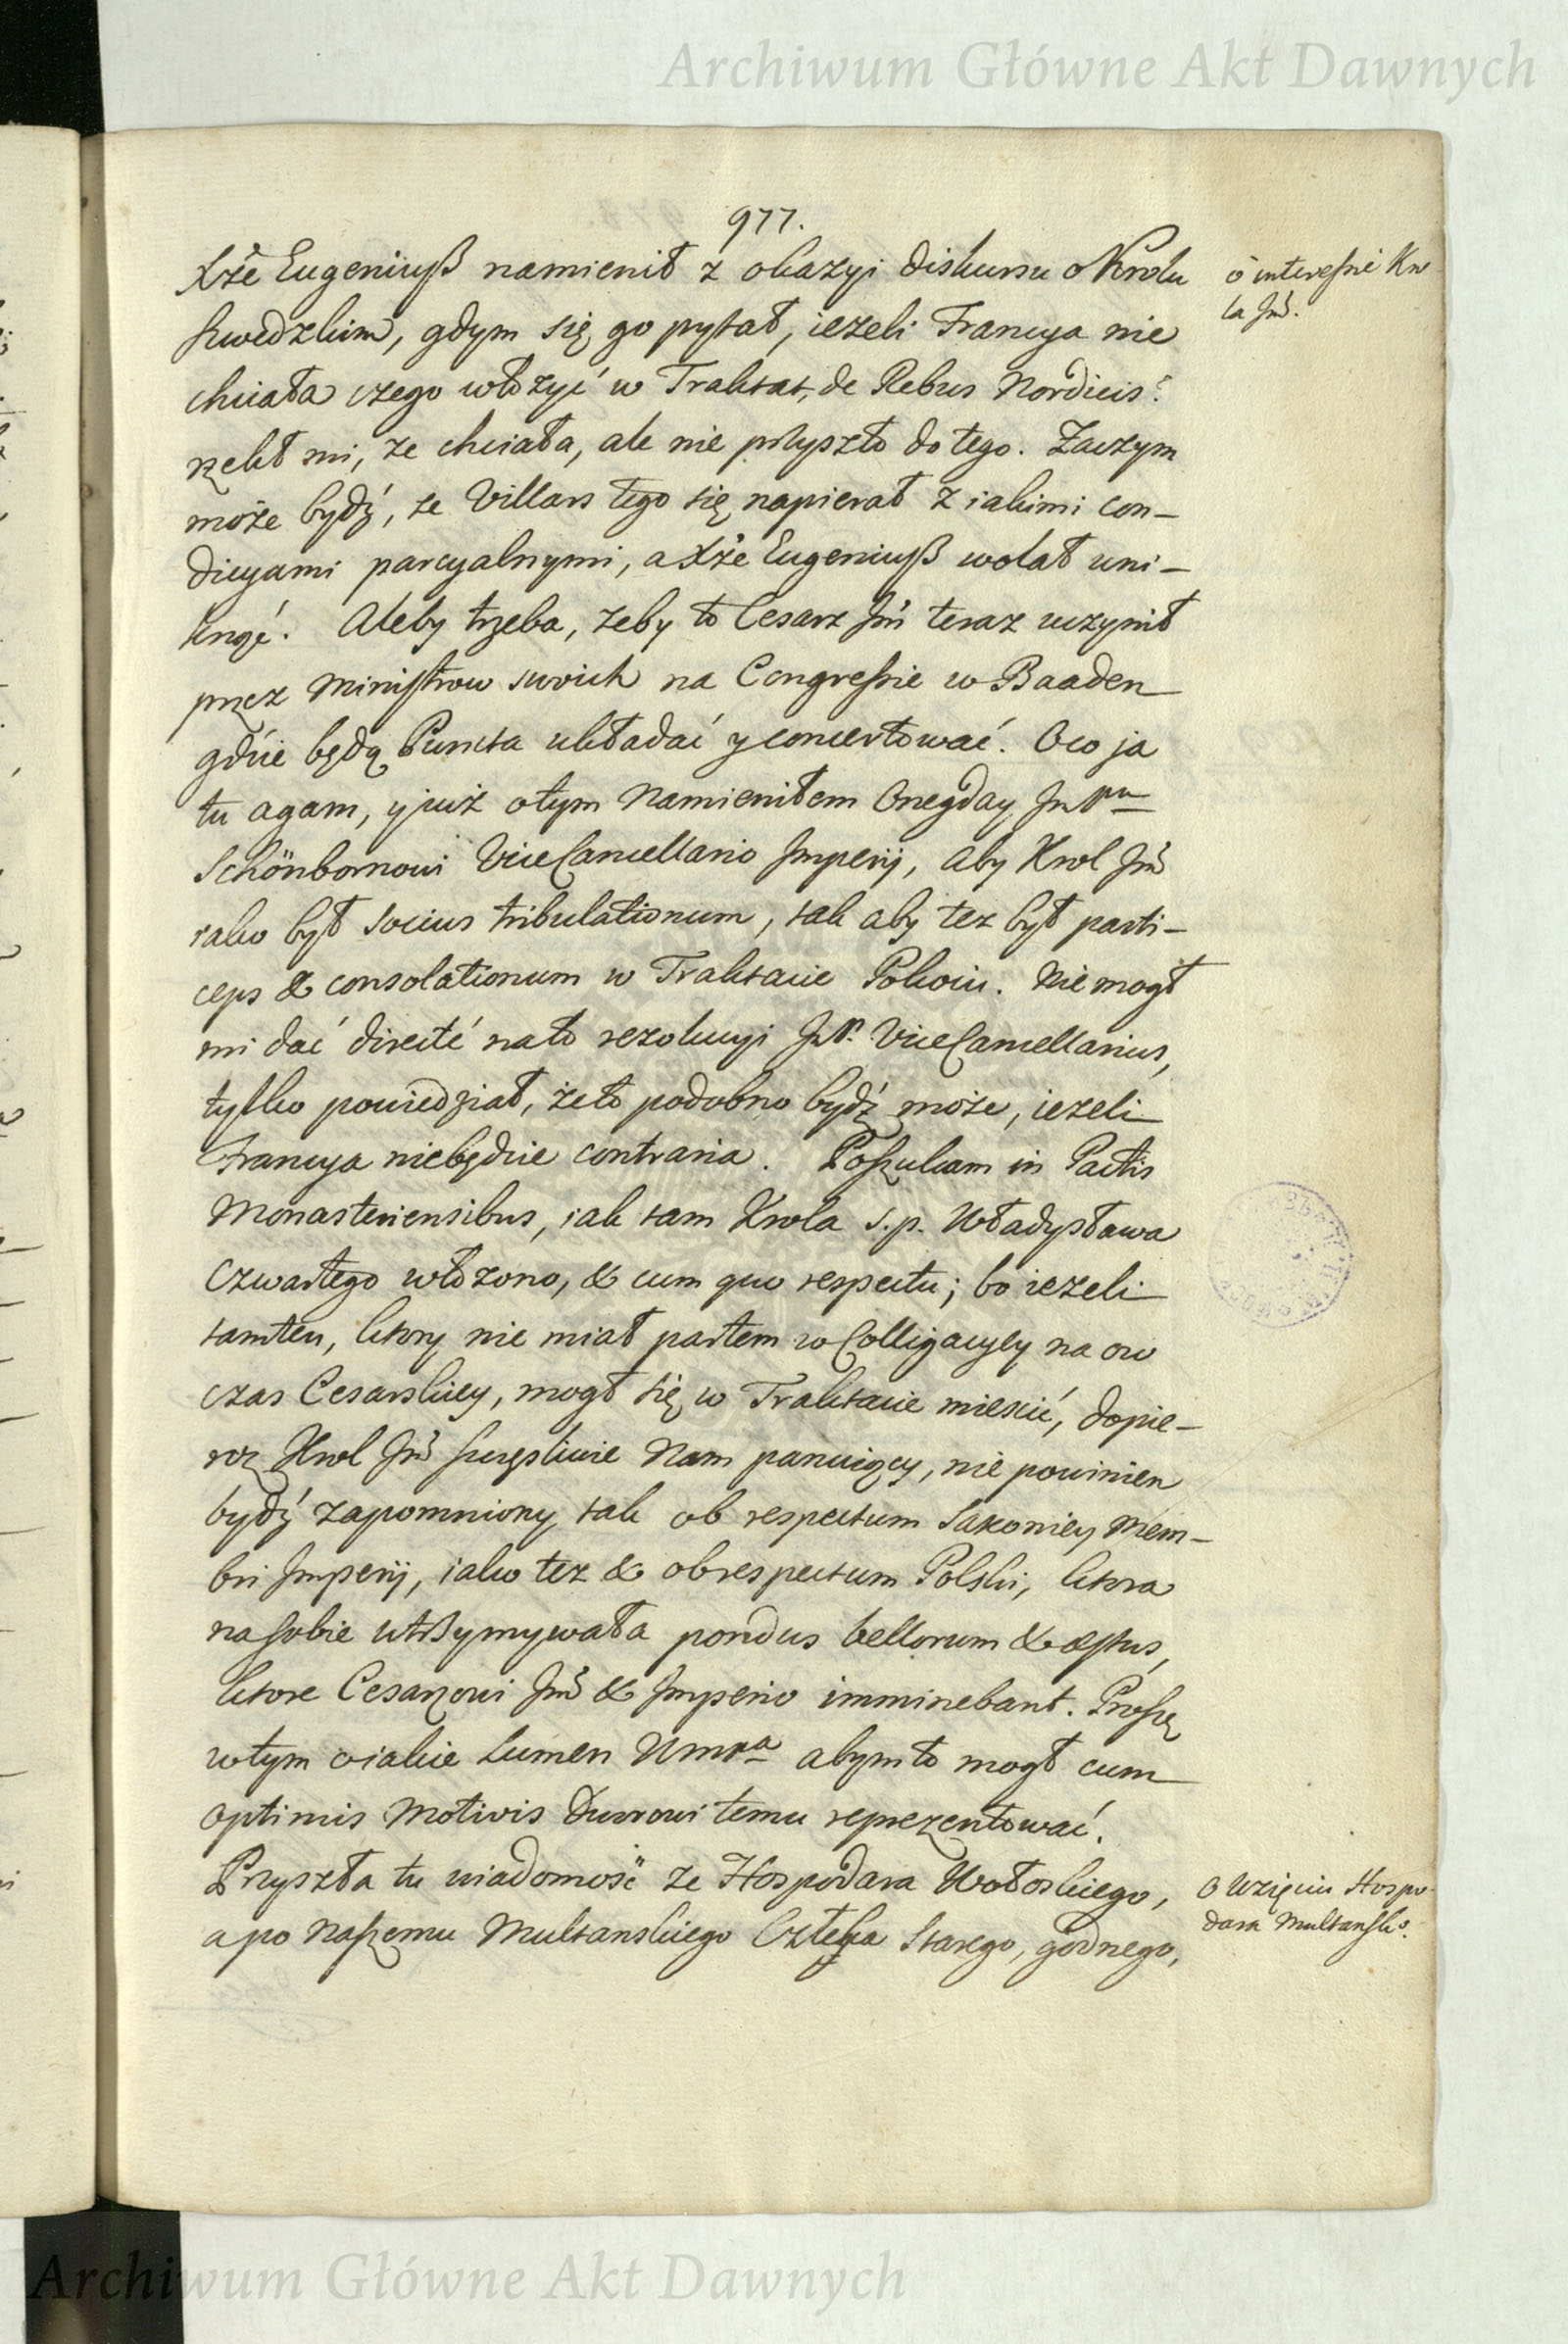 Archiwum Główne Akt Dawnych
977.
Xże Eugeniusz namienił z okazyi diskursu o Krolu
Szwedzkim, gdym się go pytał, ieżeli Francya nie
chciała czego włożyć w Traktat, de Rebus Nordicis?
rzekł mi, że chciała, ale nie przyszło do tego. Zaczym
może bydź, że Villars tego się napierał z iakimi con-
dicyami parcyalnymi, a Xże Eugeniusz wolał uni-
knąć. Aleby trzeba, żeby to Cesarz Jmć teraz uczynił
przez Ministrow swoich na Congressie w Baaden
gdzie będą Puncta układać y concertować. Oco ja
tu agam, y już otym Namieniłem Onegday Jmp̄u
Schönbornowi ViceCancellario Imperij, aby Krol Jmć
iako był Socius tribulationum, tak aby tez był parti-
ceps & consolationum w Traktacie Pokoiu. Nie mogł
mi dać directé nato rezolucyi JmP. ViceCancellarius,
tylko powiedział, żeto podobno bydź może, ieżeli
Francya niebędzie contraria. Poszukam in Pactis
Monasteriensibus, iak tam Krola s.p. Władysława
Czwartego włożono, & cum quo respectu; bo ieżeli
tamten, ktory nie miał partem w Colligacyey na ow
czas Cesarskiey, mogł się w Traktacie mieścić, dopie-
roż Krol Jmć szczęśliwie Nam panuiący, nie powinien
bydź zapomniony tak ob respectum Saxoniey Mem-
bri Imperij, iako tez & ob respectum Polski, ktora
na sobie utrzymywała pondus bellorum & æstus,
ktore Cesarzowi Jmć & Imperio imminebant. Proszę
wtym o iakie Lumen Wmpa abym to mogł cum
optimis Motivis Dworowi temu reprezentować.
Przyszła tu wiadomość że Hospodara Wołoskiego,
a po naszemu Multanskiego Człeka Starego, godnego,
o interessie Kro
la Jmć.
O Wzięciu Hospo-
dara Multansko.
Archiwum Główne Akt Dawnych